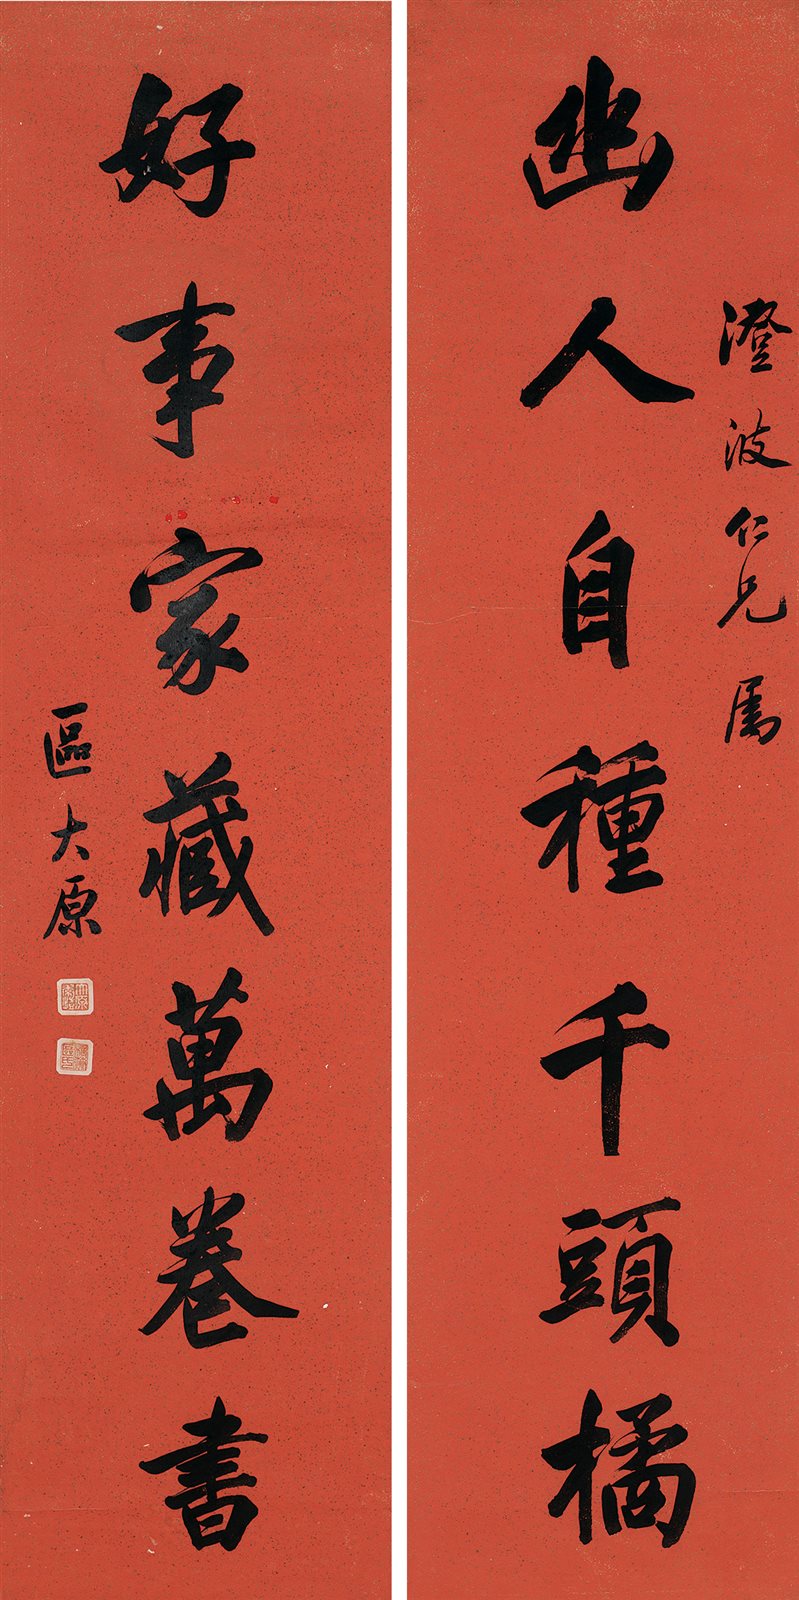 澄波仁兄属
幽人自種千頭橘
好事家藏萬卷書
區大原